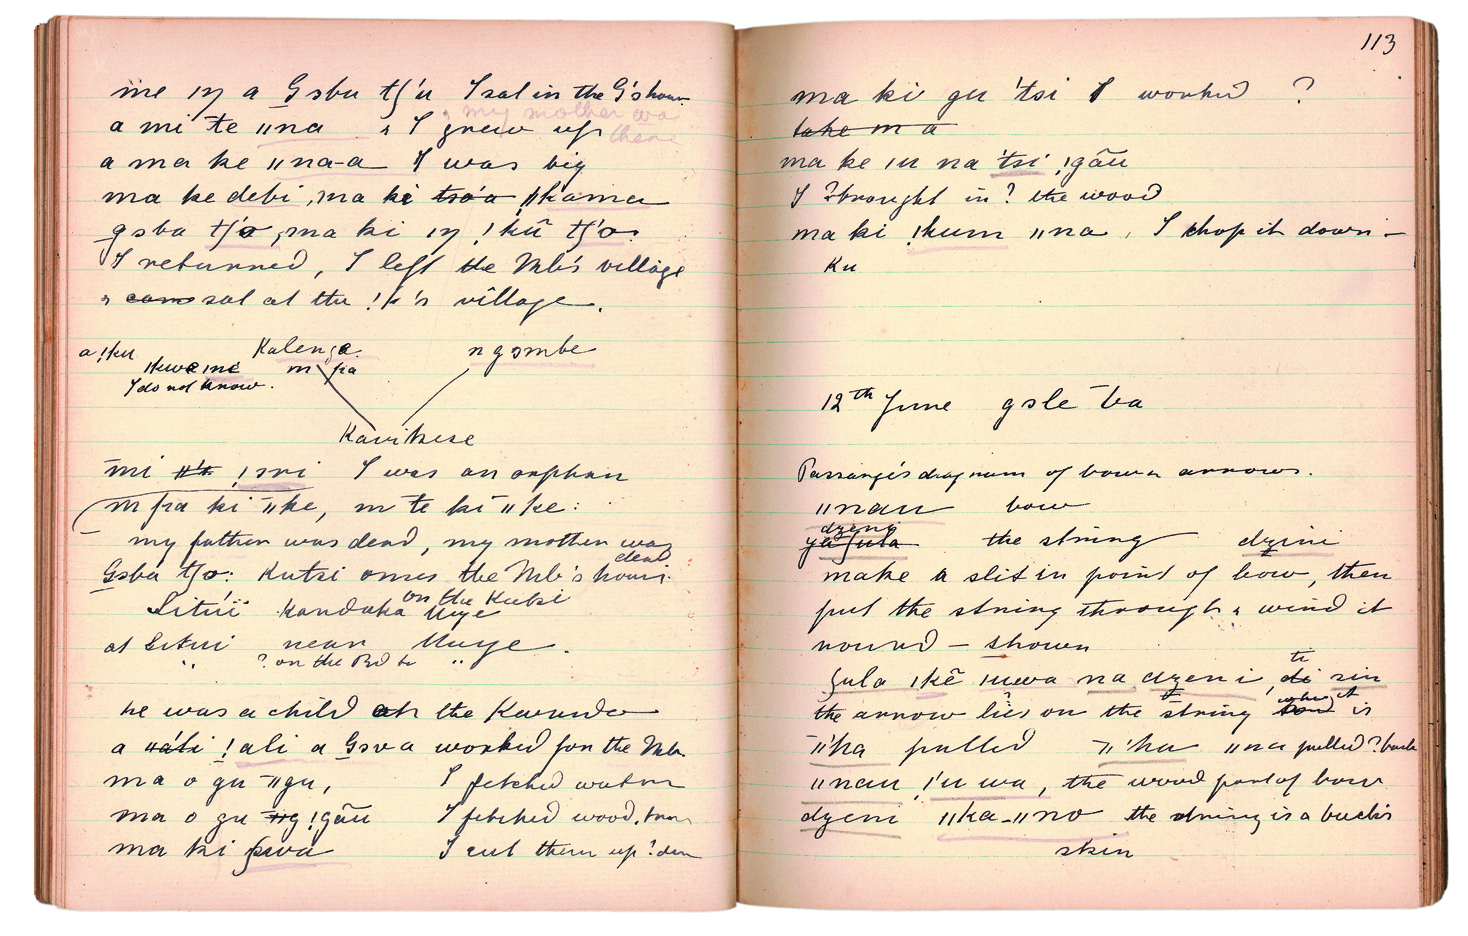 me iŋ a Gɔbu tʃ'u I sat in the G's house
my mother was there
a mi te ǁna & I grew up
a ma ke ǁna-a I was big
ma ke debi, ma ki ǁkama
gɔba tʃ'o, ma ki iŋ !kũ tʃ'o:
I returned, I left the Mb's village
& sat at the !k's village.
a !ku Kalenga ngombe
me m fa
I do not know.
Kavikese
mi !ɔni I was an orphan
m fa ki ǁke, m te ki ǁke:
my father was dead, my mother was dead
Gɔba tʃo: Kutsi omes the Mb's house
on the Kutsi
Situi Kanduka Uuye
at Situi near Uuye.
" ? on the Rd to "
he was a child at the Kavundo
a !ali a Gɔva worked for the Mb.
ma o gu ǁgu, I fetched water
ma o gu !gãu I fetched wood,
ma ki I cut them up?
113
ma ki gu 'tsi I worked ?
take m a
ma ke ıu na 'tsi !gãu
I ?brought in? the wood
ma ki !kum ǁna, I chop it down –
Ku
12th June gɔle ba
Passarge's diagram of bow & arrows.
ǁnau bow
dzeni
the string dzini
make a slit in point of bow, then
put the string through & wind it
round – shown
ti
ʃula ıkẽ ıuwa na dzeni, sin
the arrow lies on the string when it is
ǁ'ha pulled ǁ'ha ǁna pulled ? back
ǁnau !'u wa, the wood part of bow
dzeni ǁka-ǁno the string is a buck's
skin